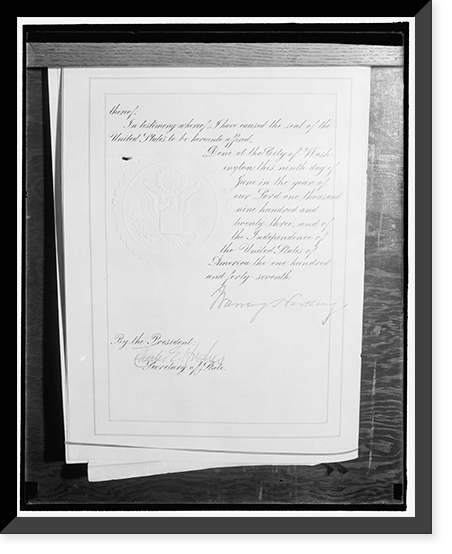 thereof.
In testimony whereof, I have caused the seal of the
United States to be hereunto affixed.
Done at the City of Wash-
ington this ninth day of
June in the year of
our Lord one thousand
nine hundred and
twenty three, and of
the Independence of
the United States of
America the one hundred
and forty seventh.
Warren G Harding
By the President:
Charles E. Hughes
Secretary of State.